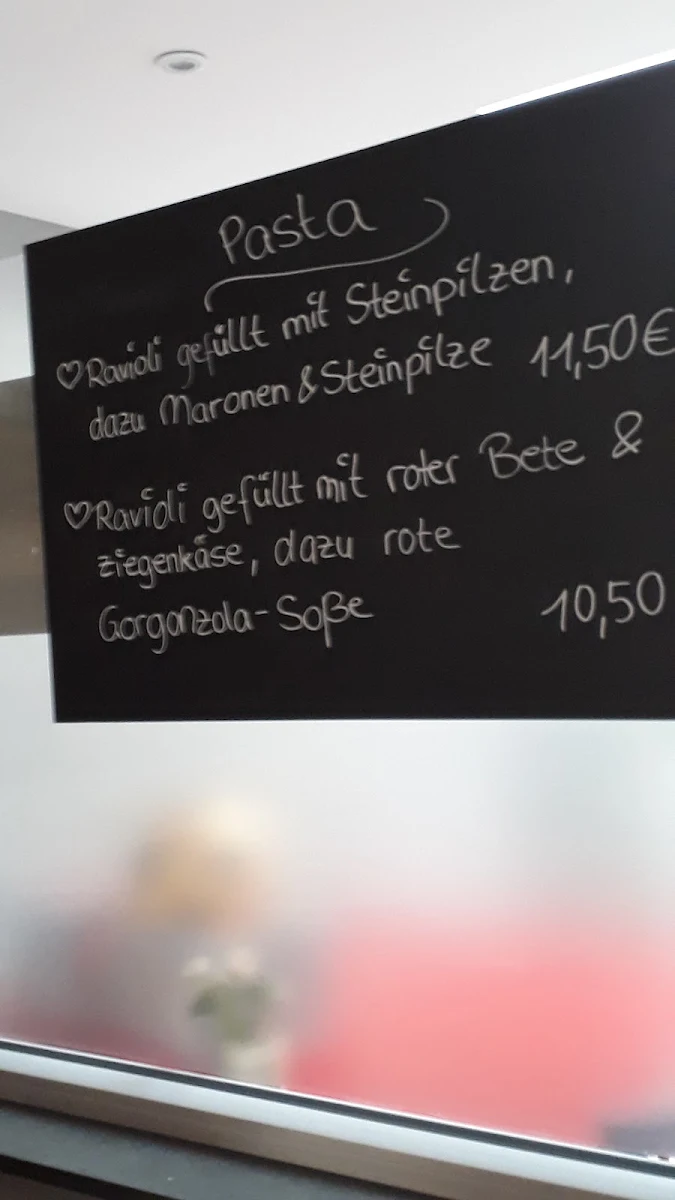 Pasta
♡Ravioli gefüllt mit Steinpilzen,
dazu Maronen & Steinpilze 11,50€
♡Ravioli gefüllt mit roter Bete &
ziegenkäse, dazu rote
Gorgonzola-Soße 10,50